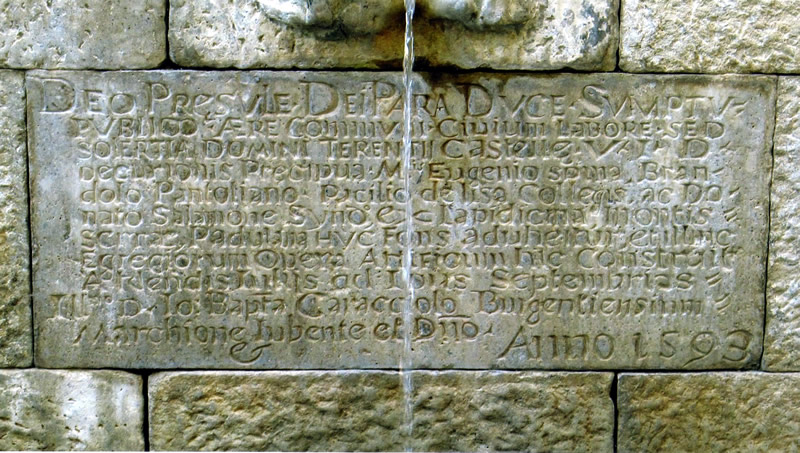 DEO PRęSVLE DEIPARA DVCE SVMPTV
PVBLICO ÆRE COMMVNI CIVIUM LABORE SED
SOLERTIA DOMINI TERENTII CASTELLę V I D
DECURIONIS PRECIPUA M EUGENIO SPINA BRAN
DOLO Pantoliano Pacilio de lisa Collegis ac Do
nato Salamone Syno ex Lapidicina montis
serrae Padulim HVC Fons aduhetur et illinc
Egregiorum Opera Artificum hic Construit
Ardendis hilijs ad Idus Septembrias
Ill D Io Bapta Caracciolo Burgentiensium
Marchione Iubente et Dño
& Anno 1593